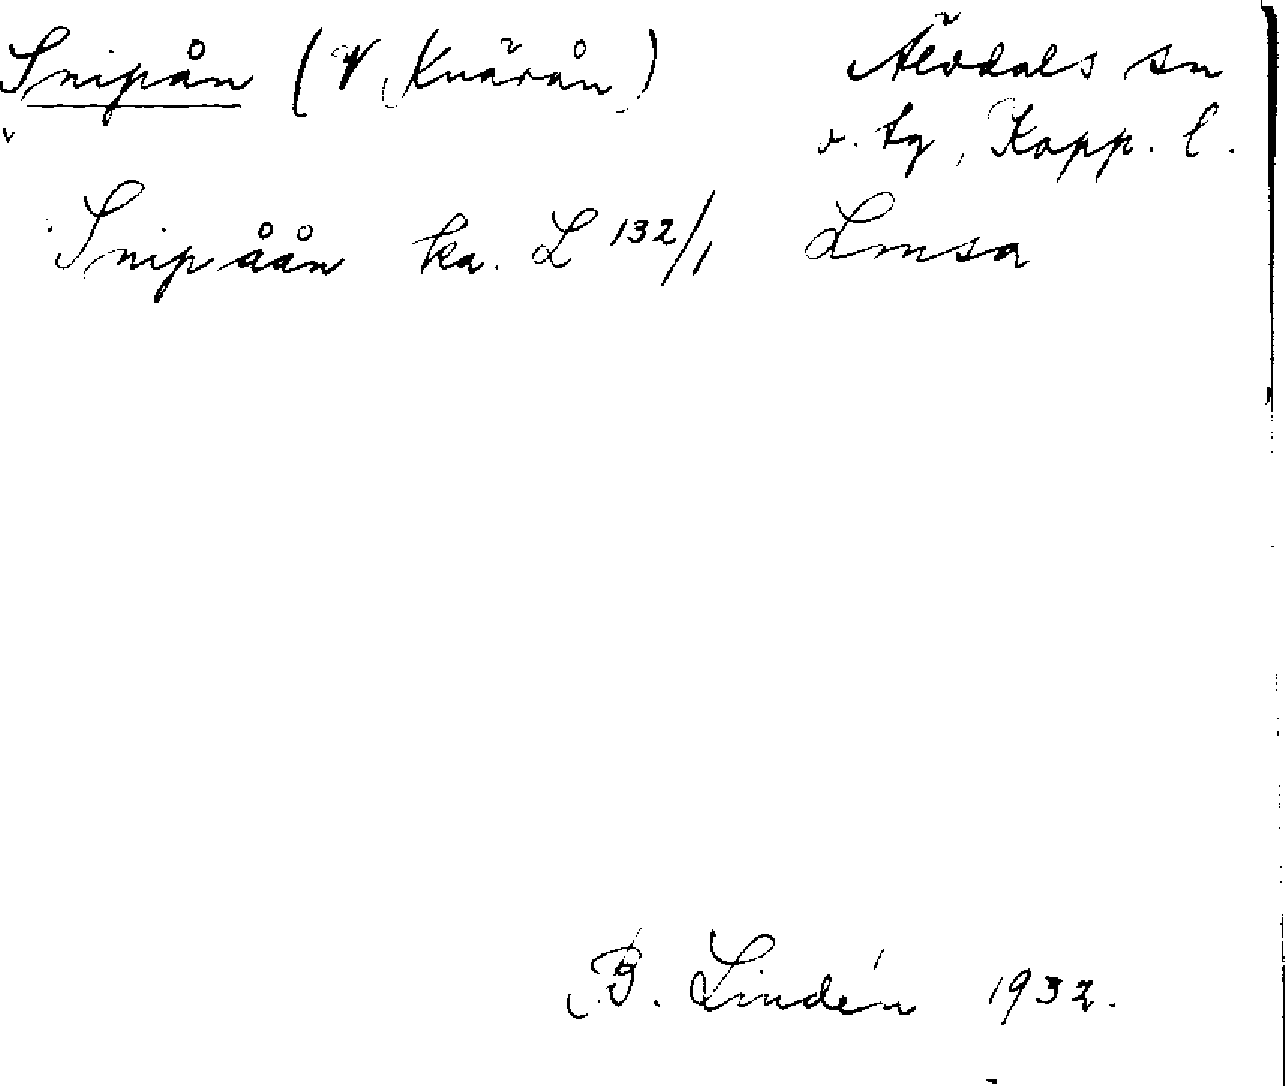 Snipån (V Knärån) Älvdals sn
v. tg, Kopp. l.
Snipåån ka. L 132/1 Lmsa
B. Lindén 1932.